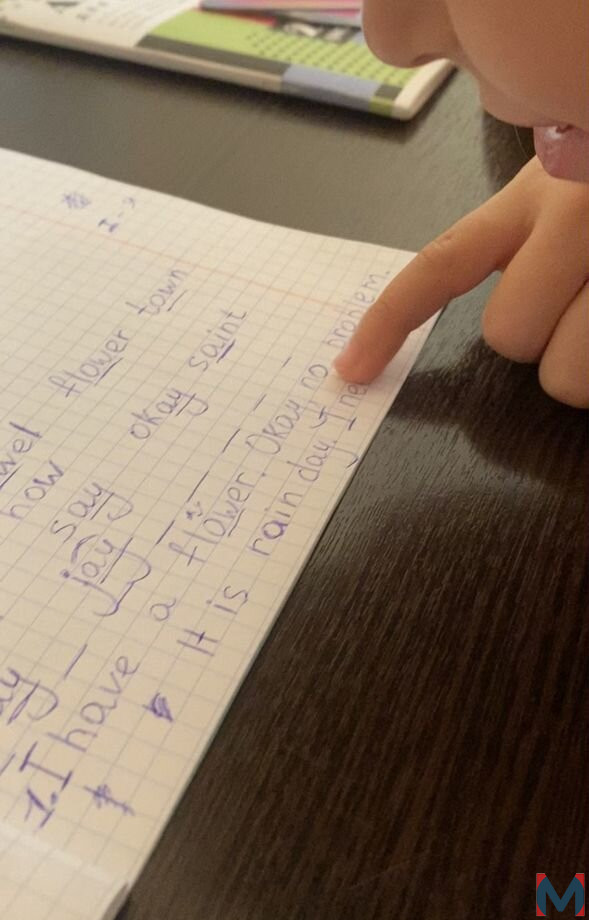 flower town
how
say okay saint
jay
1. I have a flower. Okay, no problem.
It is rain day. I
M